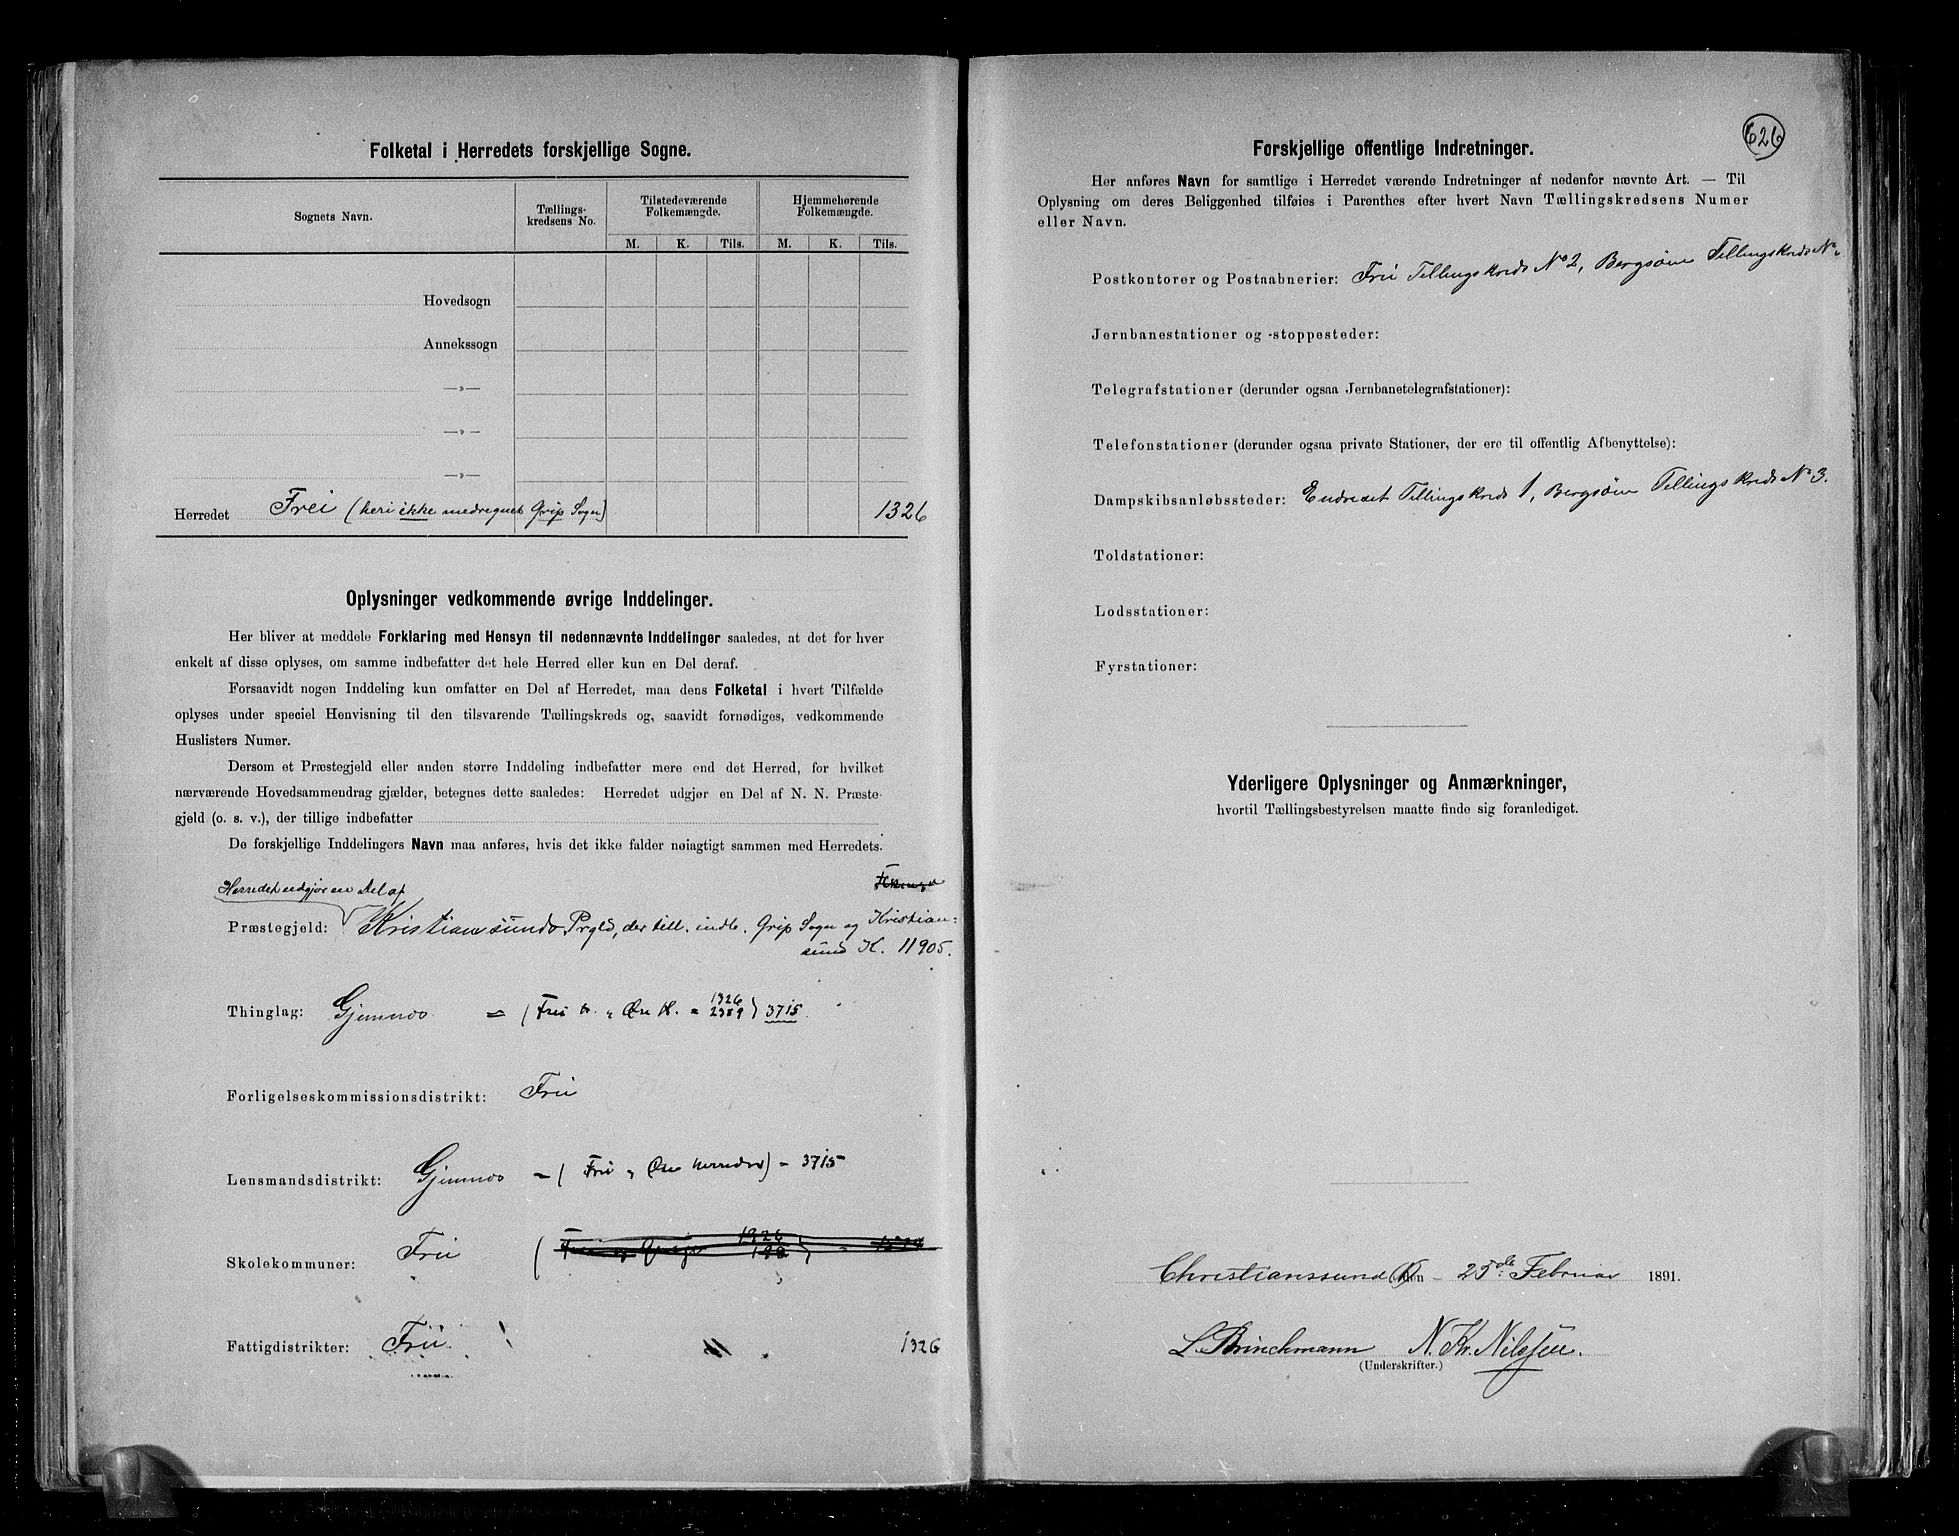 Folketal i Herredets forskjellige Sogne.
Sognets Navn.
Tællings-
kredsens No.
Tilstedeværende
Folkemængde.
Hjemmehørende
Folkemængde.
M. K. Tils. M. K. Tils.
Hovedsogn
Annekssogn
—»—
—»—
—»—
Herredet Frei (heri ikke medregnet Grip Sogn) 1326
Oplysninger vedkommende øvrige Inddelinger.
Her bliver at meddele Forklaring med Hensyn til nedennævnte Inddelinger saaledes, at det for hver
enkelt af disse oplyses, om samme indbefatter det hele Herred eller kun en Del deraf.
Forsaavidt nogen Inddeling kun omfatter en Del af Herredet, maa dens Folketal i hvert Tilfælde
oplyses under speciel Henvisning til den tilsvarende Tællingskreds og, saavidt fornødiges, vedkommende
Huslisters Numer.
Dersom et Præstegjeld eller anden større Inddeling indbefatter mere end det Herred, for hvilket
nærværende Hovedsammendrag gjælder, betegnes dette saaledes: Herredet udgjør en Del af N. N. Præste-
gjeld (o. s. v.), der tillige indbefatter
De forskjellige Inddelingers Navn maa anføres, hvis det ikke falder nøiagtigt sammen med Herredets.
Herredet udgjør en Del af
Præstegjeld: Kristiansunds Prgld, der till. indb. Grip Sogn og Kristian=
sund K. 11905.
1326
Thinglag: Gjemnes = (Frei H. og Øre H. = 2389) 3715
Forligelseskommissionsdistrikt: Frei
Lensmandsdistrikt: Gjemnes = (Frei og Øre Herreder) = 3715
1326
Skolekommuner: Frei
Fattigdistrikter: Frei 1326
626
Forskjellige offentlige Indretninger.
Her anføres Navn for samtlige i Herredet værende Indretninger af nedenfor nævnte Art. — Til
Oplysning om deres Beliggenhed tilføies i Parenthes efter hvert Navn Tællingskredsens Numer
eller Navn.
Postkontorer og Postaabnerier: Frei Tellingskreds No 2, Bergsøen Tellingskreds No
Jernbanestationer og -stoppesteder:
Telegrafstationer (derunder ogsaa Jernbanetelegrafstationer):
Telefonstationer (derunder ogsaa private Stationer, der ere til offentlig Afbenyttelse):
Dampskibsanløbssteder: Endreset Tellingskreds 1, Bergsøen Tellingskreds No 3.
Toldstationer:
Lodsstationer:
Fyrstationer:
Yderligere Oplysninger og Anmærkninger,
hvortil Tællingsbestyrelsen maatte finde sig foranlediget.
Christianssund den 25de Februar 1891.
L Brinckmann N. Kr. Nilssen.
(Underskrifter.)